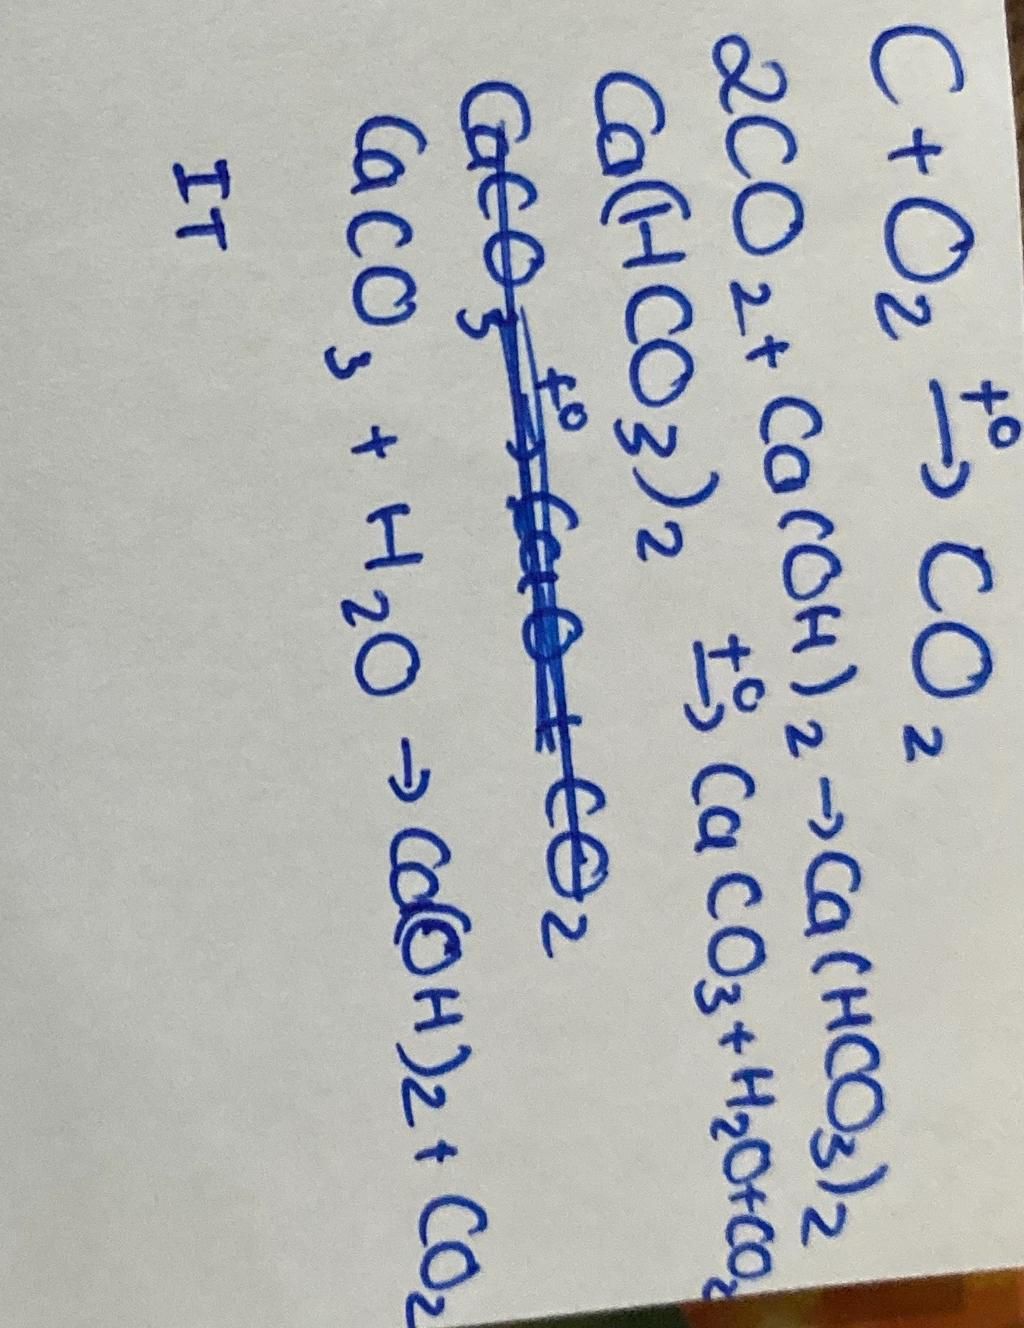 C + O₂ t° → CO₂
2CO₂ + Ca(OH)₂ → Ca(HCO₃)₂
Ca(HCO₃)₂ t° → CaCO₃ + H₂O + CO₂
CaCO₃ t° → CaO + CO₂
CaCO₃ + H₂O → Ca(OH)₂ + CO₂
IT